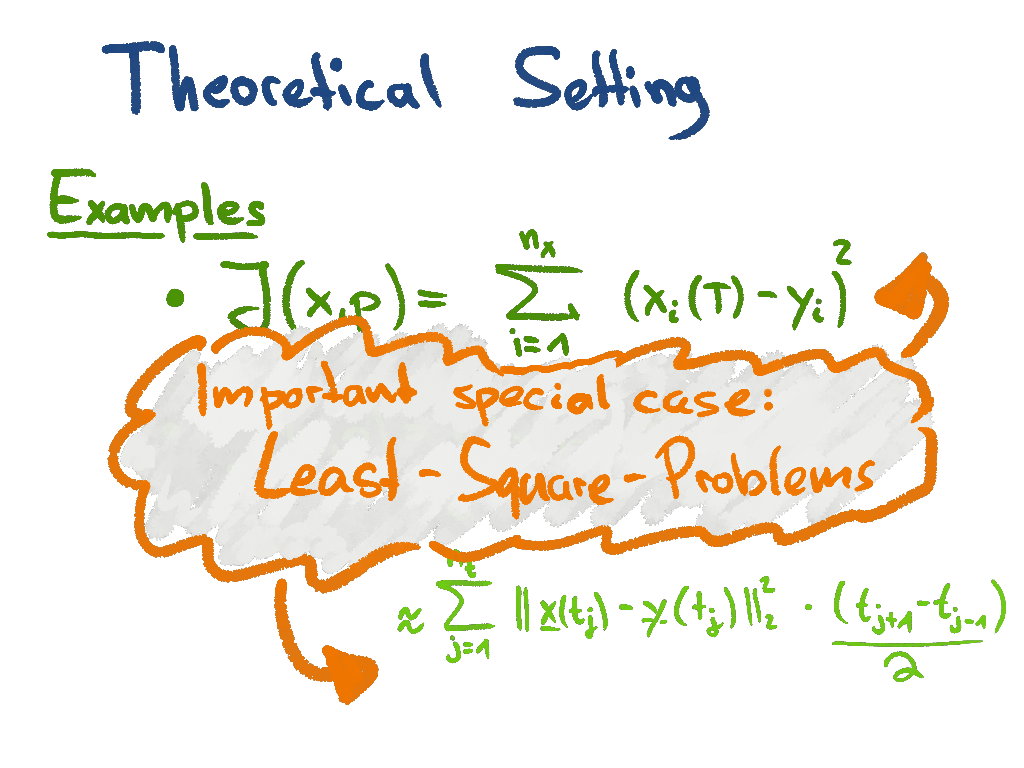 Theoretical Setting
Examples
• J(x,p) = ∑_{i=1}^{n_x} (x_i(T) - y_i)^2
Important special case:
Least-Square-Problems
≈ ∑_{j=1}^{n_t} ||x(t_j) - y(t_j)||_2^2 · (t_{j+1} - t_{j-1}) / 2